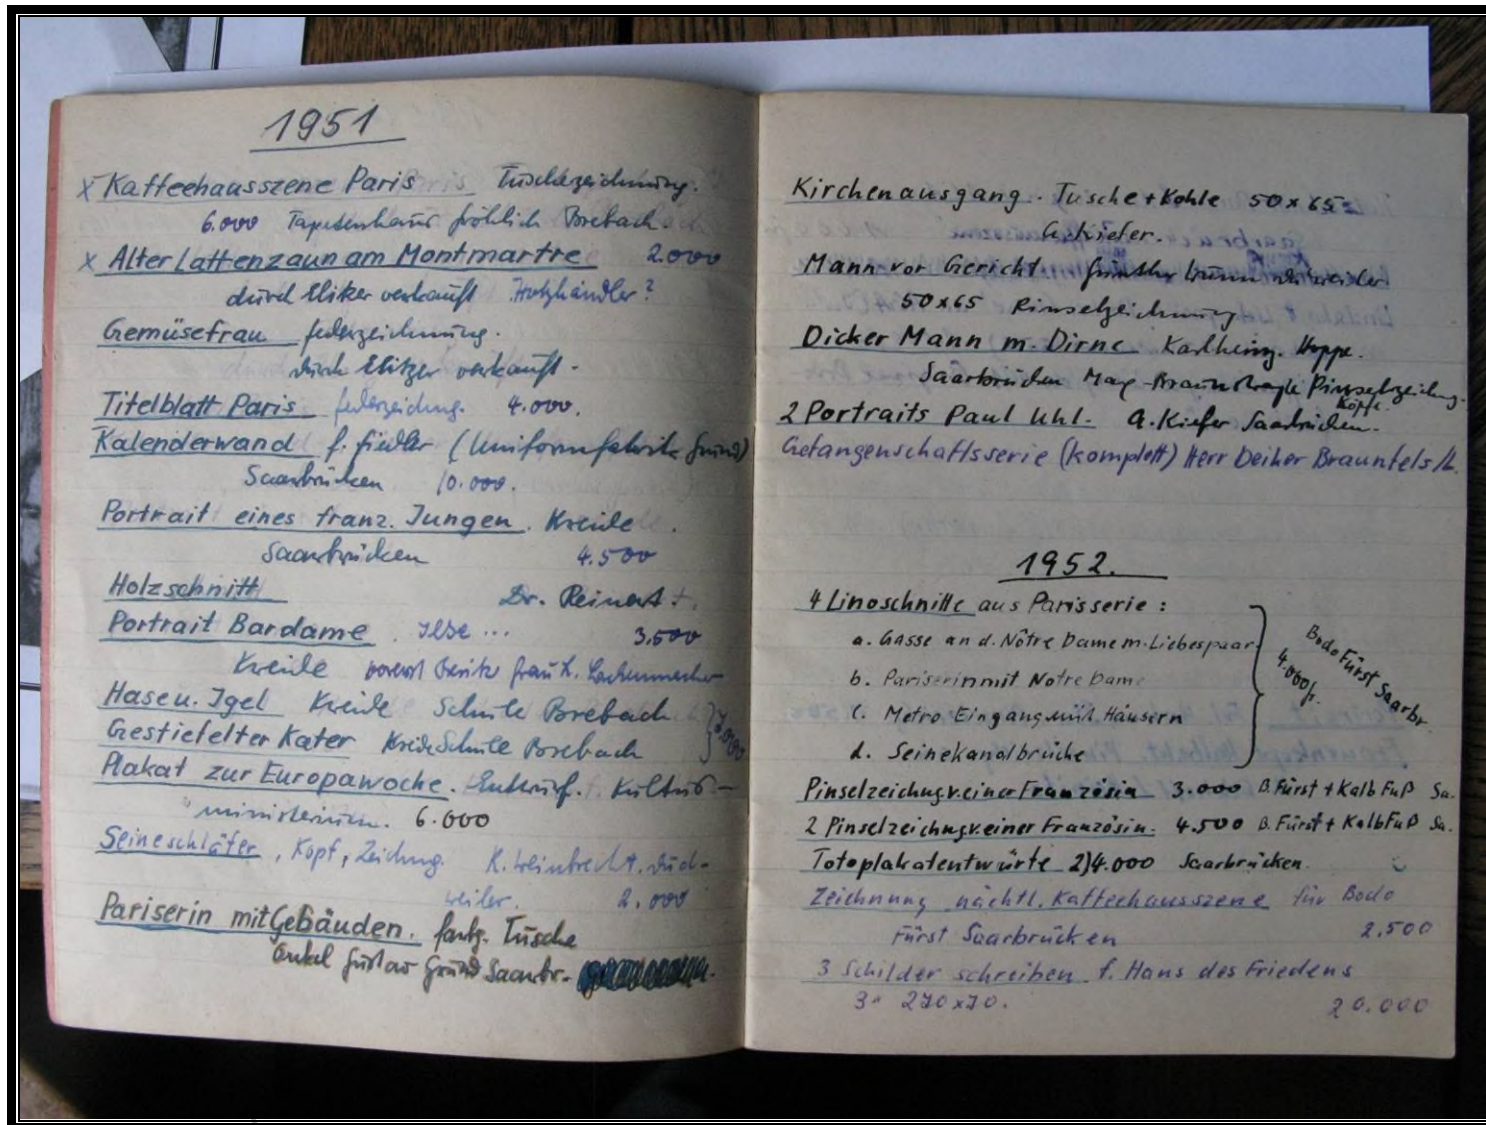 1951
x Kaffeehausszene Paris Tuschzeichnung.
6.000 Tapetenhaus Fröhlich Brebach
x Alter Lattenzaun am Montmartre 2.000
durch Elitzer verkauft Holzhändler?
Gemüsefrau Federzeichnung.
durch Elitzer verkauft.
Titelblatt Paris Federzeichng. 4.000.
Kalenderwand f. Fiedler (Uniformfabrik Grund)
Saarbrücken 10.000.
Portrait eines franz. Jungen. Kreide.
Saarbrücken 4.500
Holzschnitt Dr. Reinert
Portrait Bardame. Ilse ... 3.500
Kreide Besitz Frau K.
Hase u. Igel Kreide Schule Brebach
Gestiefelter Kater Kreide Schule Brebach
Plakat zur Europawoche. Entwurf. Kultus-
ministerium. 6.000
Seineschläfer, Kopf, Zeichng. K. Weinbrecht. Dud-
weiler. 2.000
Pariserin mit Gebäuden. farbg. Tusche
Onkel Gustav Grund Saarbr.
Kirchenausgang. Tusche + Kohle 50 x 65
G. Kiefer.
Mann vor Gericht Günther
50x65 Pinselzeichnung
Dicker Mann m. Dirne Karlheinz. Hoppe.
Saarbrücken Max-Braunstraße Pinselzeichng.
Köpfe.
2 Portraits Paul Uhl. A. Kiefer Saarbrücken.
Gefangenschaftsserie (komplett) Herr Deiher Braunfels/L.
1952.
4 Linoschnitte aus Parisserie:
a. Gasse an d. Nôtre Dame m. Liebespaar
b. Pariserin mit Notre Dame
c. Metro Eingang mit Häusern
d. Seinekanalbrücke
Bodo Fürst Saarbr.
4.000 fr.
Pinselzeichng v. einer Französin 3.000 B. Fürst + KalbFuß Sa.
2 Pinselzeichng v. einer Französin. 4.500 B. Fürst + KalbFuß Sa.
Totoplakatentwürfe 2) 4.000 Saarbrücken.
Zeichnung nächtl. Kaffeehausszene für Bodo
Fürst Saarbrücken 2.500
3 Schilder schreiben f. Haus des Friedens
3 x 270x70. 20.000